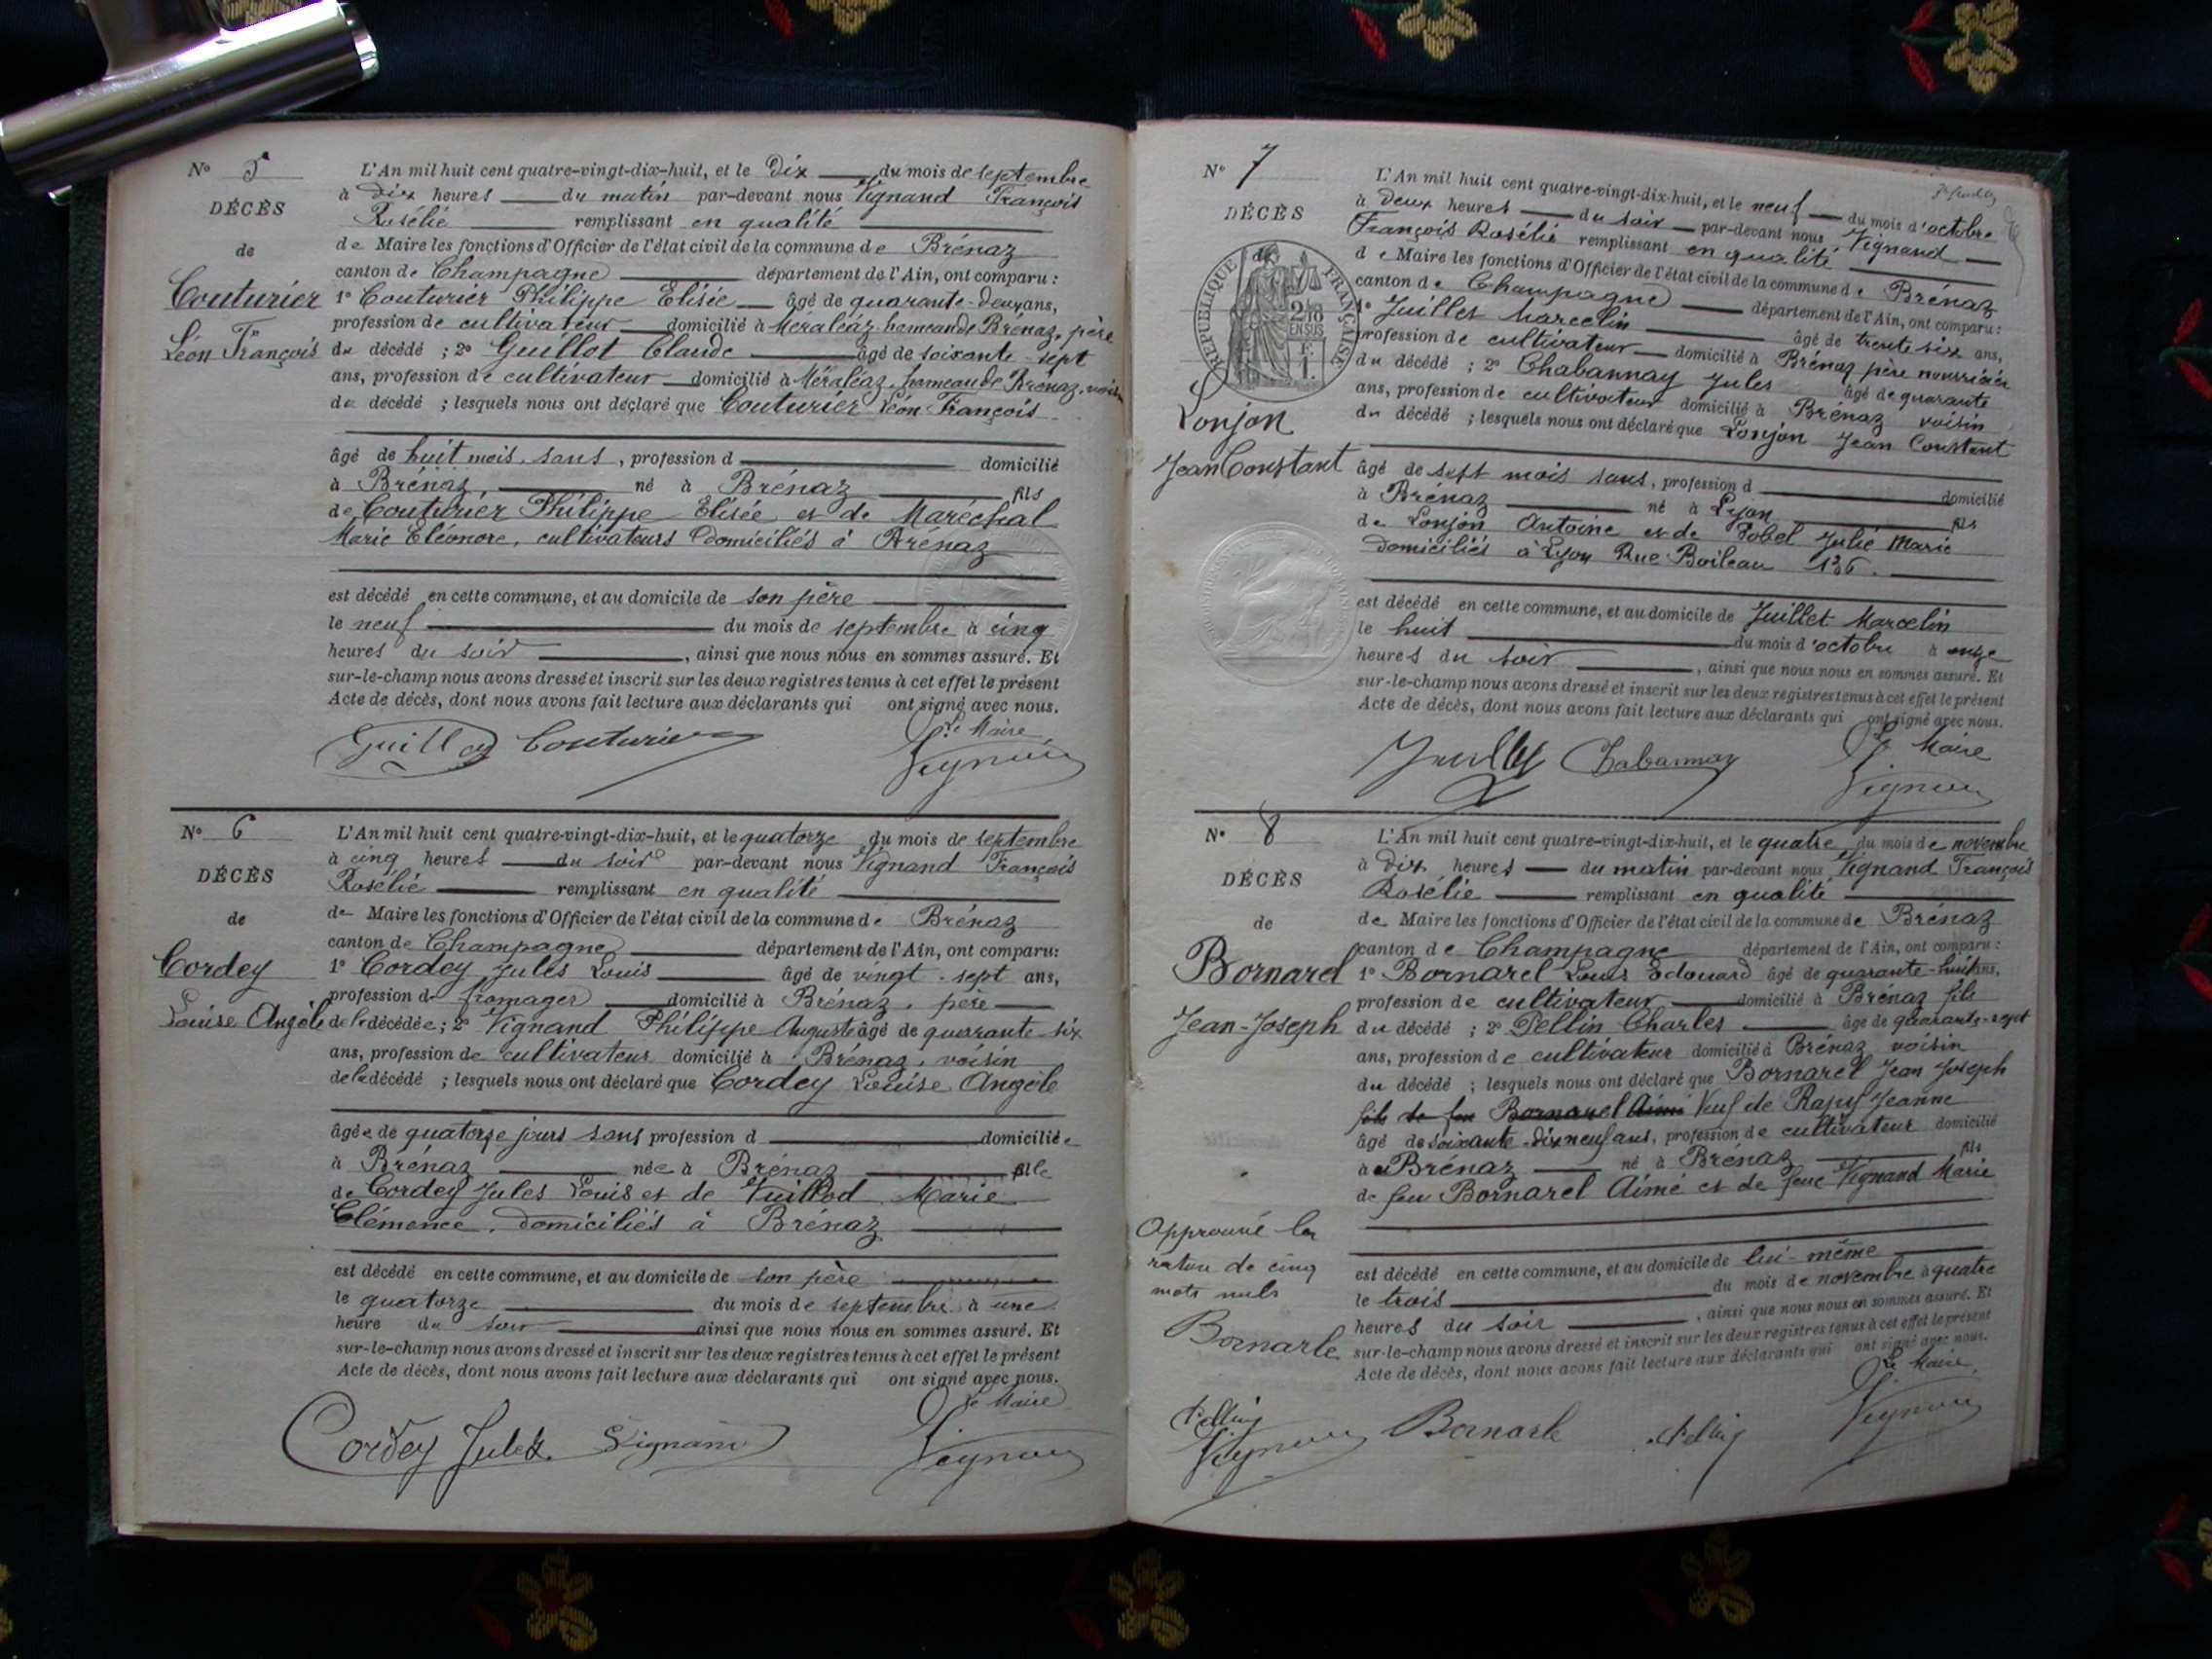 N° 5
DÉCÈS
de
Couturier
Léon François
L'An mil huit cent quatre-vingt-dix-huit, et le Dix du mois de septembre
à dix heures du matin par-devant nous Vignand François
Rosélie remplissant en qualité
de Maire les fonctions d'Officier de l'état civil de la commune de Brénaz
canton de Champagne département de l'Ain, ont comparu :
1° Couturier Philippe Elisée âgé de quarante-deux ans,
profession de cultivateur domicilié à Méraléaz hameau de Brénaz, père
du décédé ; 2° Guillot Claude âgé de soixante sept
ans, profession de cultivateur domicilié à Méraléaz, hameau de Brénaz, voisin
du décédé ; lesquels nous ont déclaré que Couturier Léon François
âgé de huit mois, sans, profession d domicilié
à Brénaz né à Brénaz fils
de Couturier Philippe Elisée et de Maréchal
Marie Eléonore, cultivateurs domiciliés à Brénaz
est décédé en cette commune, et au domicile de son père
le neuf du mois de septembre à cinq
heures du soir, ainsi que nous nous en sommes assuré. Et
sur-le-champ nous avons dressé et inscrit sur les deux registres tenus à cet effet le présent
Acte de décès, dont nous avons fait lecture aux déclarants qui ont signé avec nous.
Le Maire
Guillot Couturier Vignand
N° 6
DÉCÈS
de
Cordey
Louise Angèle
L'An mil huit cent quatre-vingt-dix-huit, et le quatorze du mois de septembre
à cinq heures du soir par-devant nous Vignand François
Rosélie remplissant en qualité
de Maire les fonctions d'Officier de l'état civil de la commune de Brénaz
canton de Champagne département de l'Ain, ont comparu :
1° Cordey Jules Louis âgé de vingt-sept ans,
profession de fromager domicilié à Brénaz, père
de la décédée ; 2° Vignand Philippe Auguste âgé de quarante six
ans, profession de cultivateur domicilié à Brénaz, voisin
de la décédé ; lesquels nous ont déclaré que Cordey Louise Angèle
âgée de quatorze jours sans profession d domiciliée
à Brénaz née à Brénaz fille
de Cordey Jules Louis et de Vuillod Marie
Clémence, domiciliés à Brénaz
est décédé en cette commune, et au domicile de son père
le quatorze du mois de septembre à une
heure du soir ainsi que nous nous en sommes assuré. Et
sur-le-champ nous avons dressé et inscrit sur les deux registres tenus à cet effet le présent
Acte de décès, dont nous avons fait lecture aux déclarants qui ont signé avec nous.
Le Maire
Cordey Jules Vignand Vignand
N° 7
DÉCÈS
de
RÉPUBLIQUE FRANÇAISE
2/10 EN SUS
F. 1.
Lonjon
Jean Constant
L'An mil huit cent quatre-vingt-dix-huit, et le neuf du mois d'octobre
à deux heures du soir par-devant nous Vignand
François Rosélie remplissant en qualité
de Maire les fonctions d'Officier de l'état civil de la commune de Brénaz
canton de Champagne département de l'Ain, ont comparu :
1° Juillet Marcelin âgé de trente six ans,
profession de cultivateur domicilié à Brénaz père nourricier
du décédé ; 2° Chabannay Jules âgé de quarante
ans, profession de cultivateur domicilié à Brénaz voisin
du décédé ; lesquels nous ont déclaré que Lonjon Jean Constant
âgé de sept mois sans, profession d domicilié
à Brénaz né à Lyon fils
de Lonjon Antoine et de Julie Marie
domiciliés à Lyon Rue Boileau 136.
est décédé en cette commune, et au domicile de Juillet Marcelin
le huit du mois d'octobre à onze
heures du soir, ainsi que nous nous en sommes assuré. Et
sur-le-champ nous avons dressé et inscrit sur les deux registres tenus à cet effet le présent
Acte de décès, dont nous avons fait lecture aux déclarants qui ont signé avec nous.
Le Maire
Juillet Chabannay Vignand
N° 8
DÉCÈS
de
Bornarel
Jean-Joseph
L'An mil huit cent quatre-vingt-dix-huit, et le quatre du mois de novembre
à dix heures du matin par-devant nous Vignand François
Rosélie remplissant en qualité
de Maire les fonctions d'Officier de l'état civil de la commune de Brénaz
canton de Champagne département de l'Ain, ont comparu :
1° Bornarel Louis Edouard âgé de quarante-huit ans,
profession de cultivateur domicilié à Brénaz fils
du décédé ; 2° Pellin Charles âgé de quarante-sept
ans, profession de cultivateur domicilié à Brénaz voisin
du décédé ; lesquels nous ont déclaré que Bornarel Jean Joseph
fils de feu Bornarel Aimé Veuf de Rapy Jeanne
âgé de soixante-dix neuf ans, profession de cultivateur domicilié
à Brénaz né à Brénaz fils
de feu Bornarel Aimé et de feue Vignand Marie
est décédé en cette commune, et au domicile de lui-même
le trois du mois de novembre à quatre
heures du soir, ainsi que nous nous en sommes assuré. Et
sur-le-champ nous avons dressé et inscrit sur les deux registres tenus à cet effet le présent
Acte de décès, dont nous avons fait lecture aux déclarants qui ont signé avec nous.
Approuvé la
rature de cinq
mots nuls
Bornarle
Le Maire
Pelling Vignand Bornarle Pelling Vignand